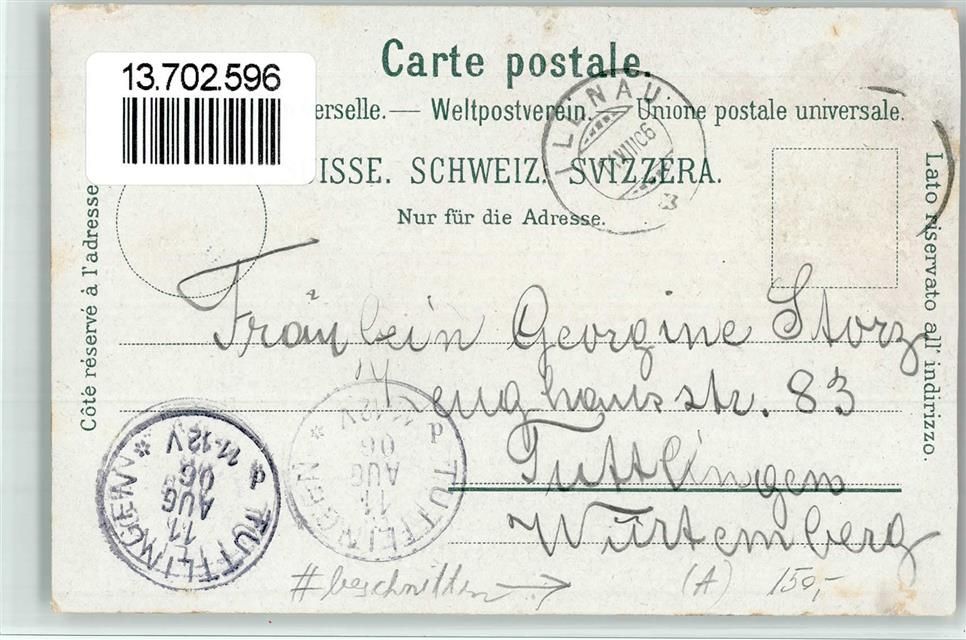 13.702.596
Carte postale.
erselle. — Weltpostverein. — Unione postale universale.
ISSE. SCHWEIZ. SVIZZERA.
Nur für die Adresse.
Côté réservé à l'adresse
Lato riservato all' indirizzo.
ILLNAU
Fräulein Georgine Storz
Zeughausstr. 83
Tuttlingen
Würtemberg
TUTTLINGEN
11
AUG
06
11-12 V
TUTTLINGEN
11
AUG
06
11-12 V
#beschnitten → (A) 150,-